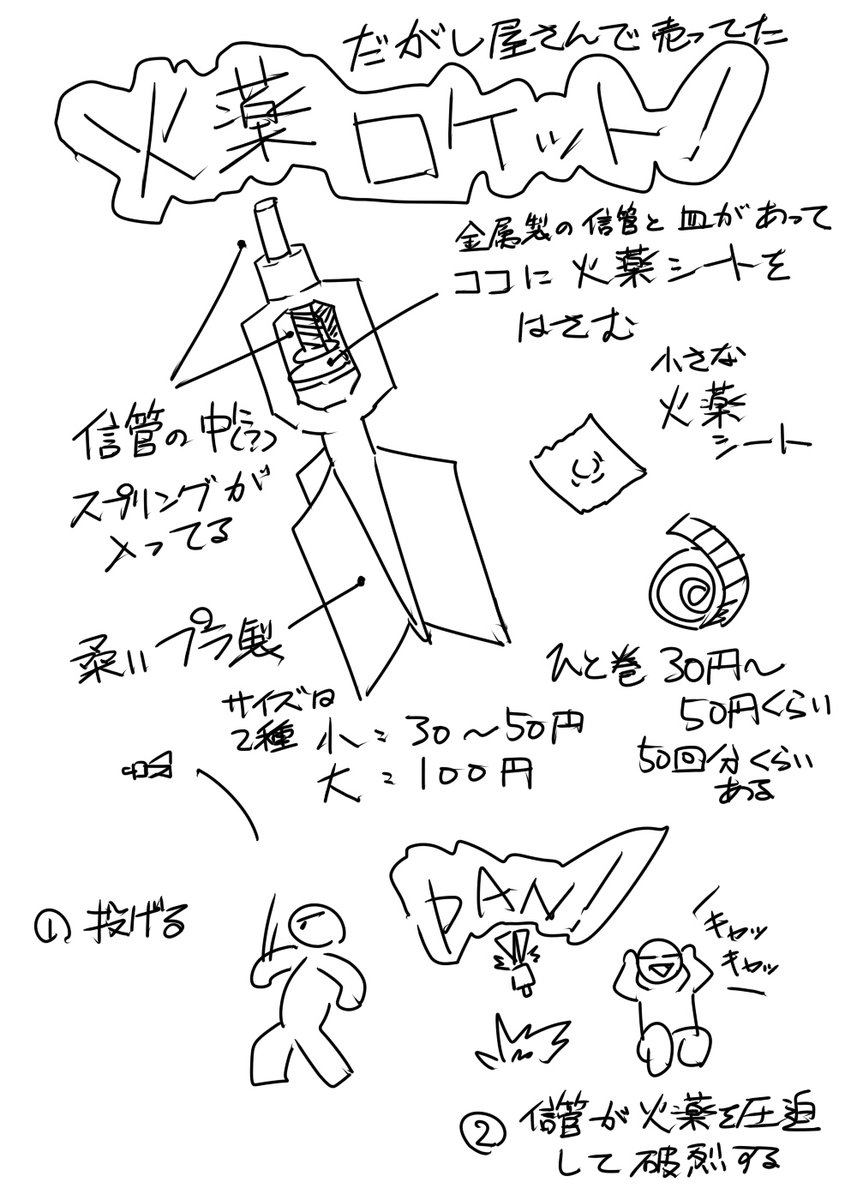 だがし屋さんで売ってた
火薬ロケットッ
金属製の信管と皿があって
ココに火薬シートを
はさむ
小さな
火薬
シート
信管の中に(?)
スプリングが
入ってる
柔いプラ製
ひと巻30円〜
50円くらい
50回分くらい
ある
サイズは
2種
小=30〜50円
大=100円
①投げる
PAN!
キャッ
キャッ
②信管が火薬を圧迫
して破烈する